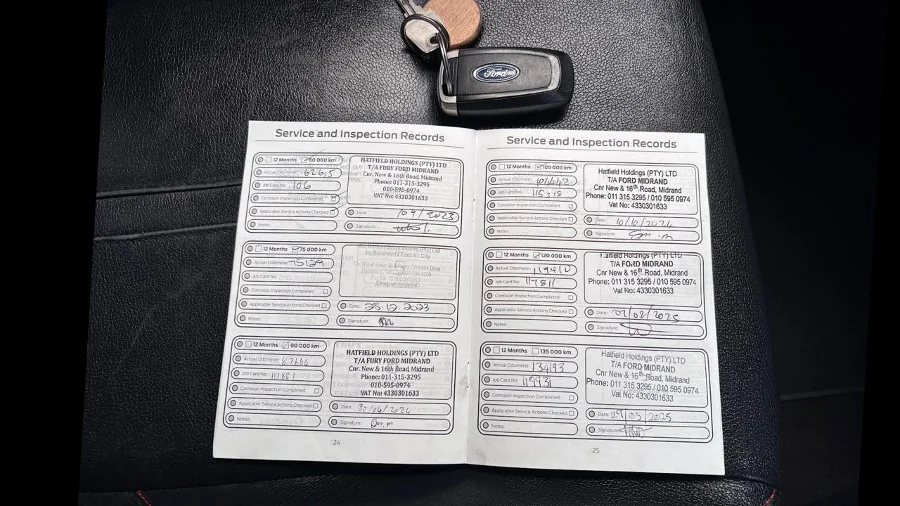 Ford
Service and Inspection Records
12 Months 60 000 km
Actual Odometer: 62615
Job Card No: 106
Corrosion Inspection Completed
Applicable Service Actions Checked
Notes:
HATFIELD HOLDINGS (PTY) LTD
T/A FURY FORD MIDRAND
Cnr. New & 16th Road, Midrand
Phone: 011-315-3295
010-595-0974
VAT No: 4330301633
Date: /09/2023
Signature:
12 Months 75 000 km
Actual Odometer: 75129
Job Card No:
Corrosion Inspection Completed
Applicable Service Actions Checked
Notes:
Date: 25.12.2023
Signature:
12 Months 90 000 km
Actual Odometer:
Job Card No:
Corrosion Inspection Completed
Applicable Service Actions Checked
Notes:
HATFIELD HOLDINGS (PTY) LTD
T/A FURY FORD MIDRAND
Cnr. New & 16th Road, Midrand
Phone: 011-315-3295
010-595-0974
VAT No: 4330301633
Date: 30/04/2024
Signature:
24
Service and Inspection Records
12 Months 105 000 km
Actual Odometer:
Job Card No: 115318
Corrosion Inspection Completed
Applicable Service Actions Checked
Notes:
Hatfield Holdings (PTY) LTD
T/A FORD MIDRAND
Cnr New & 16th Road, Midrand
Phone: 011 315 3295 / 010 595 0974
Vat No: 4330301633
Date: 10/10/2024
Signature:
12 Months 120 000 km
Actual Odometer:
Job Card No: 117811
Corrosion Inspection Completed
Applicable Service Actions Checked
Notes:
Hatfield Holdings (PTY) LTD
T/A FORD MIDRAND
Cnr New & 16th Road, Midrand
Phone: 011 315 3295 / 010 595 0974
Vat No: 4330301633
Date: 07/02/2025
Signature:
12 Months 135 000 km
Actual Odometer: 134193
Job Card No: 119931
Corrosion Inspection Completed
Applicable Service Actions Checked
Notes:
Hatfield Holdings (PTY) LTD
T/A FORD MIDRAND
Cnr New & 16th Road, Midrand
Phone: 011 315 3295 / 010 595 0974
Vat No: 4330301633
Date: 29/05/2025
Signature:
25